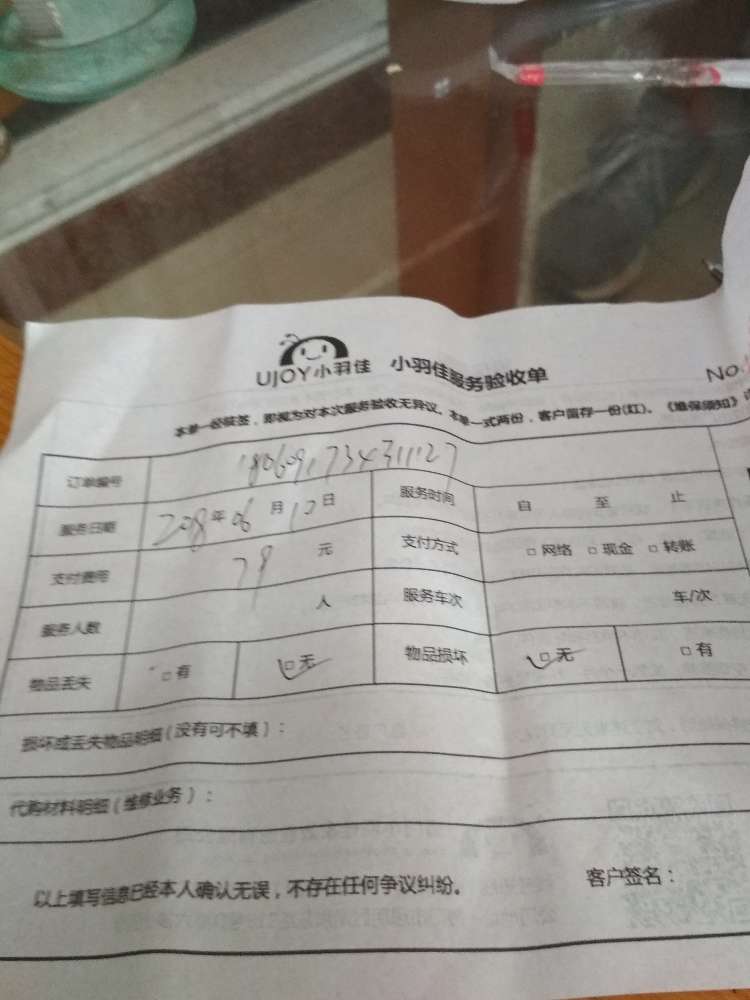 UJOY小羽佳 小羽佳服务验收单
No.
本单一经核签，即视为对本次服务验收无异议。本单一式两份，客户留存一份(红)。《维保须知》
订单编号 180609173431127
服务日期 2018年06月10日 服务时间 自 至 止
支付费用 79 元 支付方式 □网络 □现金 □转账
服务人数 人 服务车次 车/次
物品丢失 □有 □无 物品损坏 □无 □有
损坏或丢失物品明细(没有可不填)：
代购材料明细(维修业务)：
以上填写信息已经本人确认无误，不存在任何争议纠纷。 客户签名：